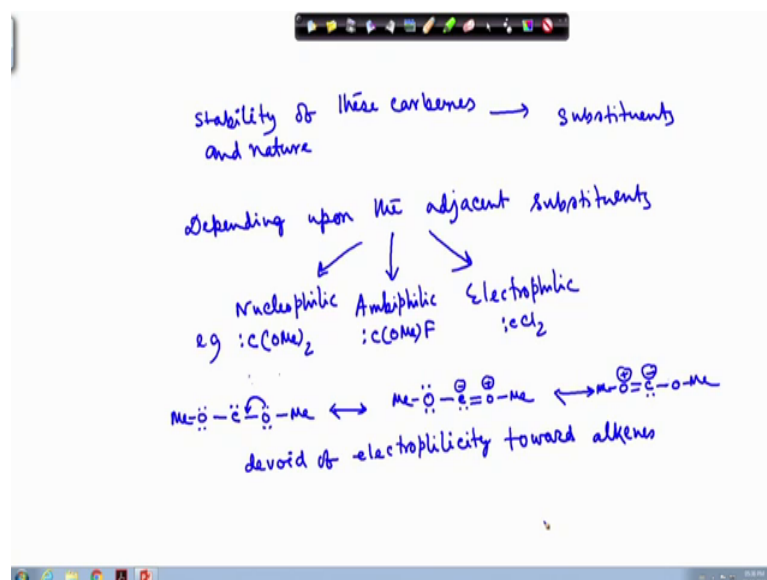 Stability of these carbenes → substituents
and nature
Depending upon the adjacent substituents
Nucleophilic Ambiphilic Electrophilic
eg :C(OMe)₂ :C(OMe)F :CCl₂
Me-Ö-C̈-Ö-Me ↔ Me-Ö-C̈=O-Me ↔ Me-O=C̈-O-Me
⊖ ⊕ ⊕ ⊖
devoid of electroplilicity toward alkenes